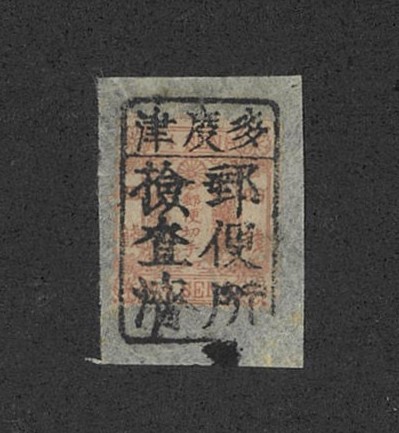 多度津
郵便所
撿査濟
SEN